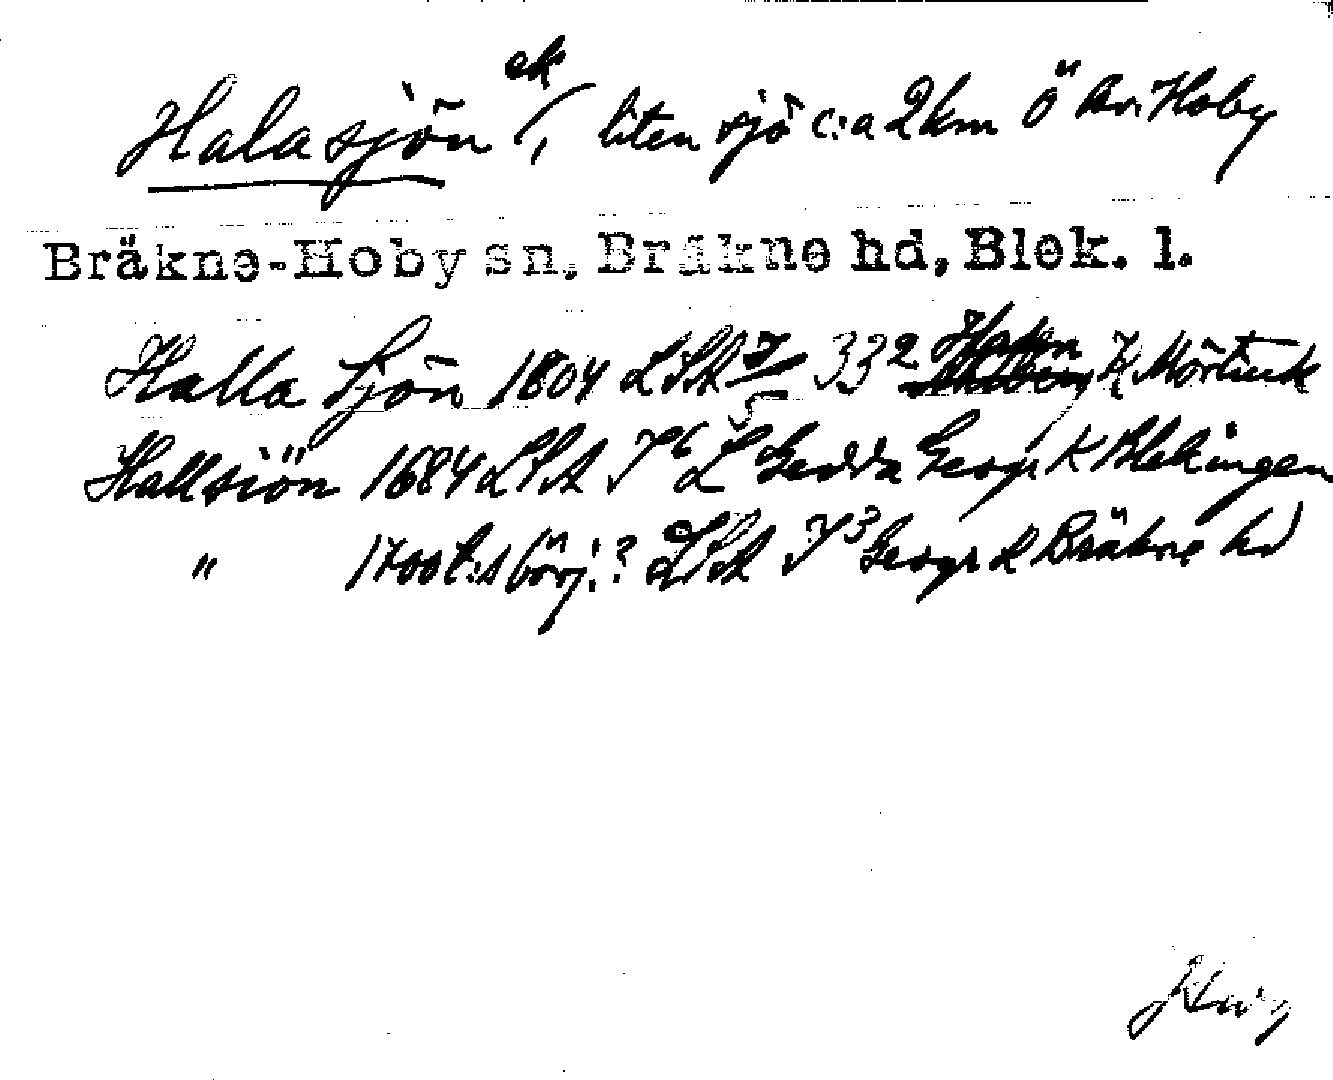 Halasjön ek/, liten sjö c:a 2 km ö km Hoby
Bräkne-Hoby sn, Bräkne hd, Blek. l.
Halla Sjön 1804 LSA 332 K Mörtiuk
Hallsiön 1684 LSA Gedda Geogr K Blekingen
" 1700 t:s börj.? LSA Geogr K Bräkne hd